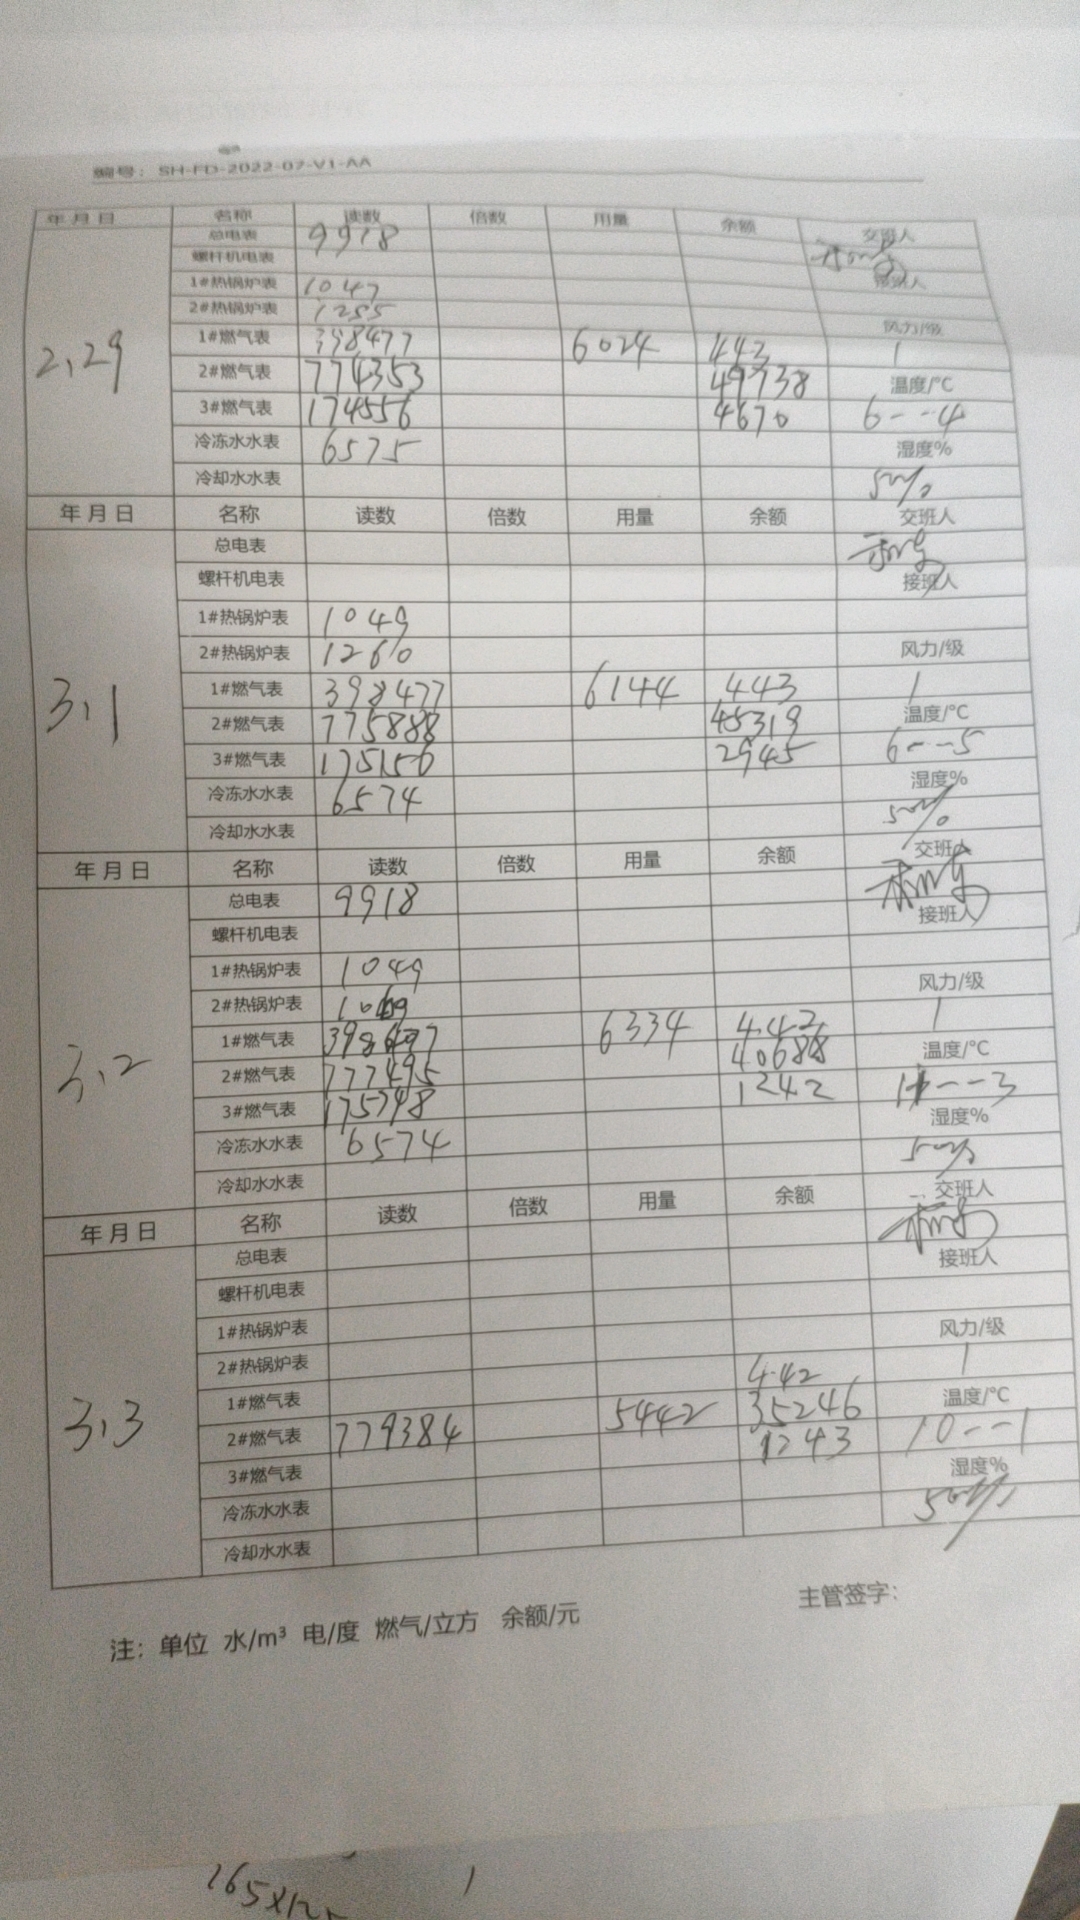 编号：SH-FD-2022-07-V1-AA
年月日 名称 读数 倍数 用量 余额 交班人
总电表 9918
螺杆机电表 接班人
1#热锅炉表 1047
2#热锅炉表 1255 风力/级
2,29 1#燃气表 398477 6024 443 1
2#燃气表 774353 49738 温度/℃
3#燃气表 174556 4670 6--4
冷冻水水表 6575 湿度%
冷却水水表 50%
年月日 名称 读数 倍数 用量 余额 交班人
总电表
螺杆机电表 接班人
1#热锅炉表 1049
2#热锅炉表 1260 风力/级
3,1 1#燃气表 398477 6144 443 1
2#燃气表 775888 45319 温度/℃
3#燃气表 175156 2945 6--5
冷冻水水表 6574 湿度%
冷却水水表 50%
年月日 名称 读数 倍数 用量 余额 交班人
总电表 9918
螺杆机电表 接班人
1#热锅炉表 1049
2#热锅炉表 风力/级
3,2 1#燃气表 6334 442 1
2#燃气表 777495 40688 温度/℃
3#燃气表 175798 1242 --3
冷冻水水表 6574 湿度%
冷却水水表 50%
年月日 名称 读数 倍数 用量 余额 交班人
总电表 接班人
螺杆机电表
1#热锅炉表 风力/级
2#热锅炉表 442 1
3,3 1#燃气表 5442 35246 温度/℃
2#燃气表 779384 1243 10--1
3#燃气表 湿度%
冷冻水水表 50%
冷却水水表
主管签字：
注：单位 水/m³ 电/度 燃气/立方 余额/元